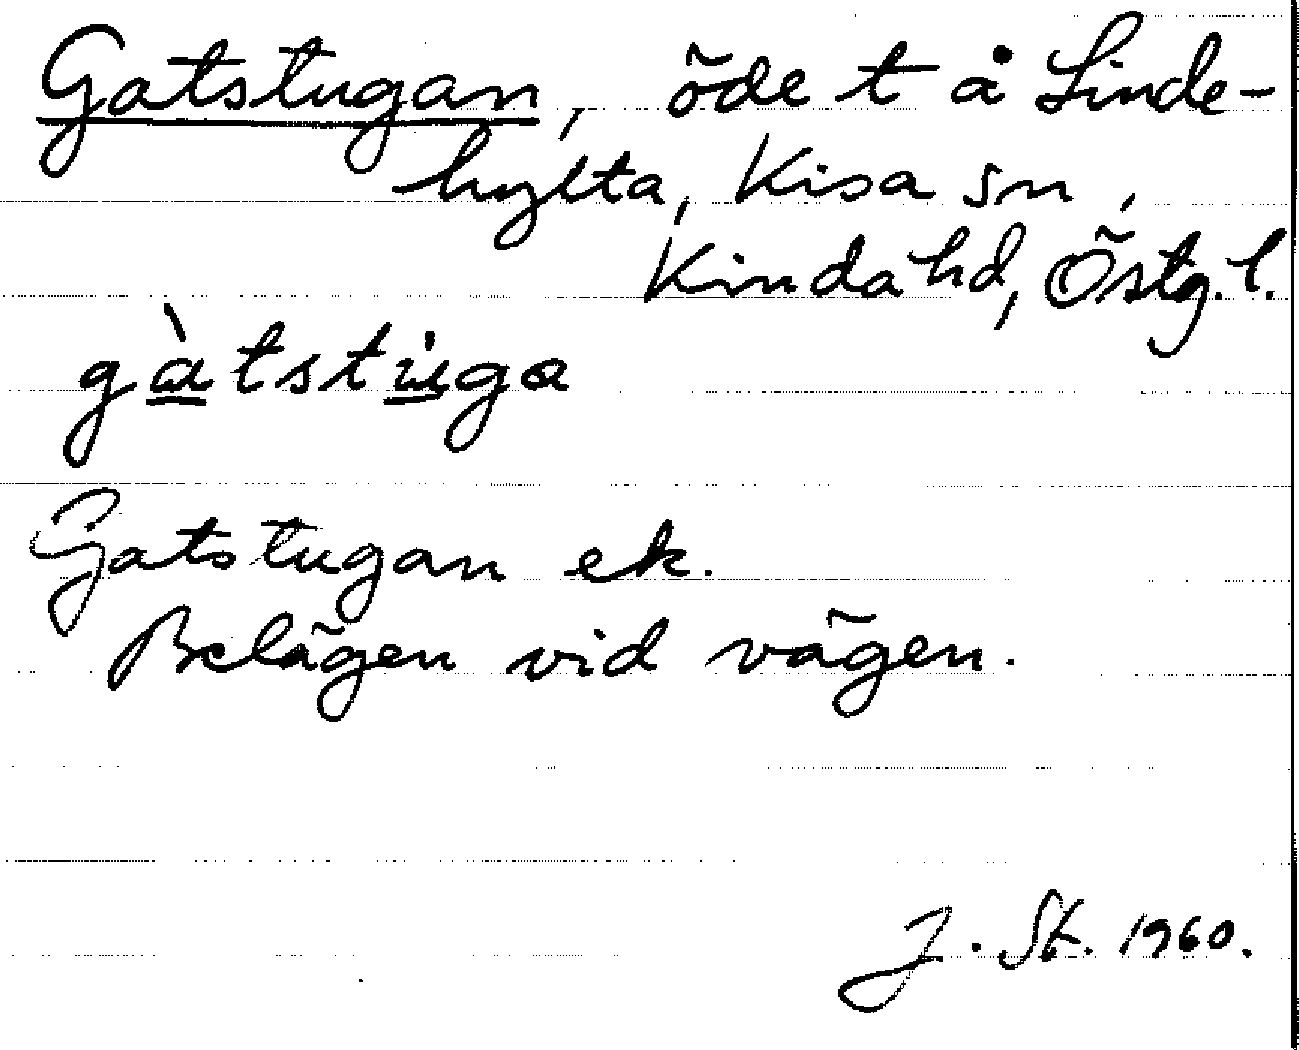 Gatstugan, öde t å Linde-
hylta, Kisa sn,
Kinda hd, Östg. l.
gàtstu̇ga
Gatstugan ek.
Belägen vid vägen.
J. St. 1960.